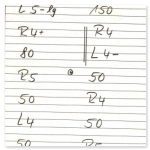 L 5-lg 150
R4+ R4
80 L4-
R5 @ 50
50 R4
L4 50
50 R5